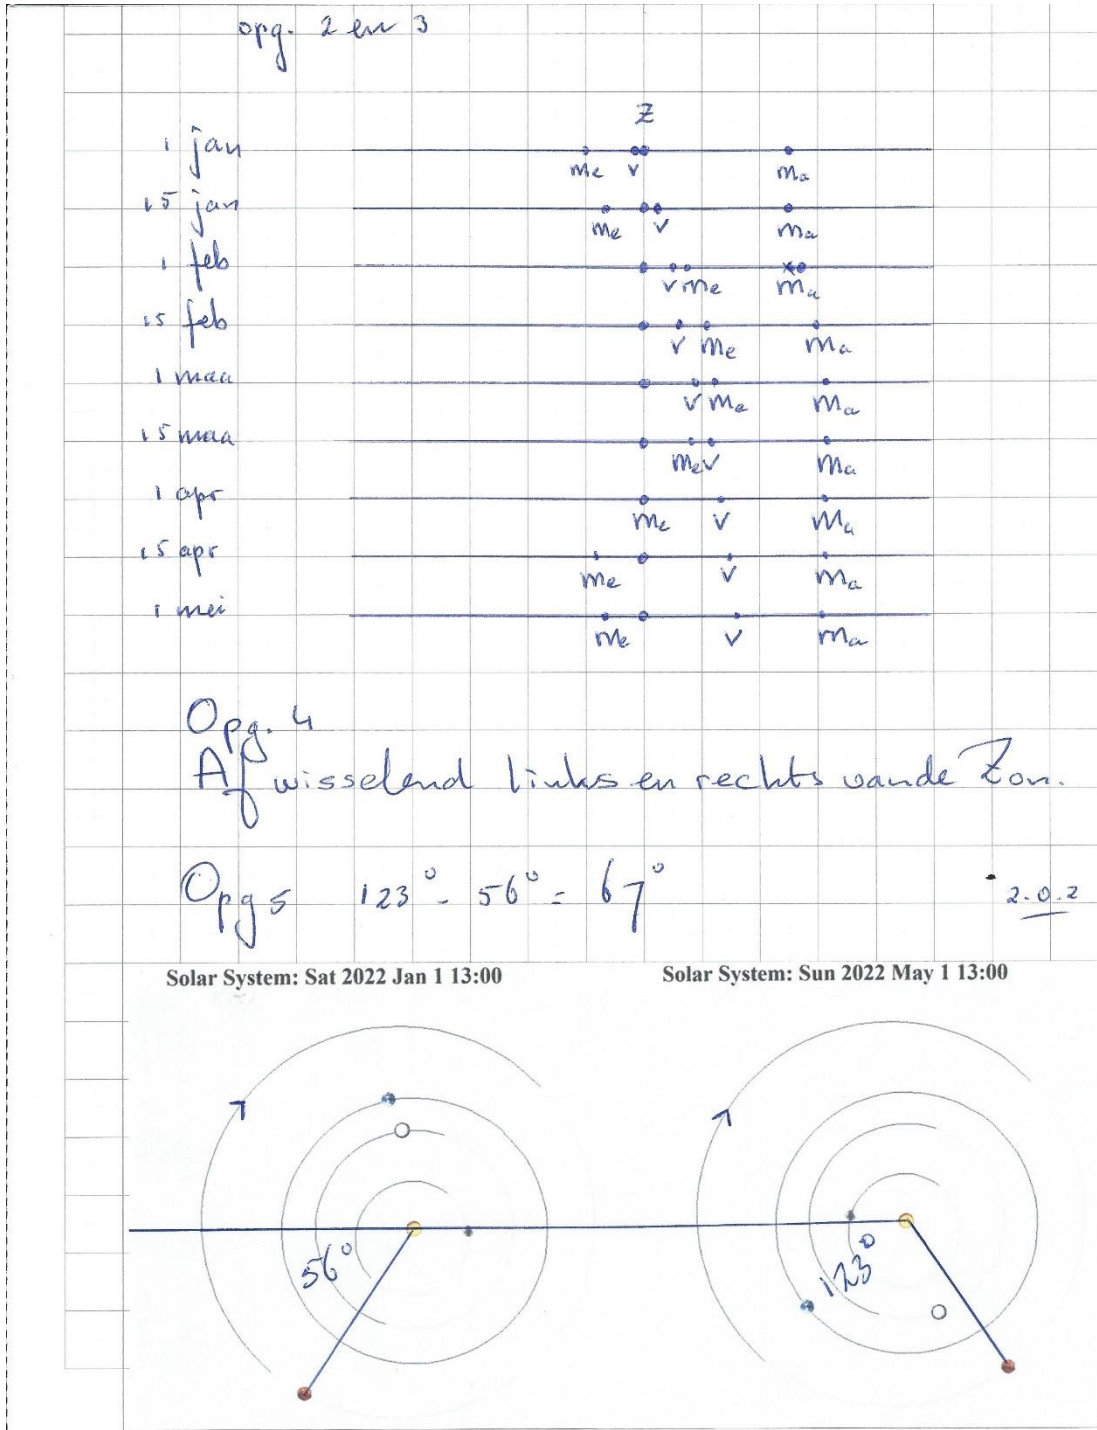 opg. 2 en 3
Z
1 jan
me v ma
15 jan
me v ma
1 feb
v me ma
15 feb
v me ma
1 maa
v me ma
15 maa
me v ma
1 apr
me v ma
15 apr
me v ma
1 mei
me v ma
Opg. 4
Afwisselend links en rechts van de Zon.
Opg 5 123° - 56° = 67°
2.0.2
Solar System: Sat 2022 Jan 1 13:00 Solar System: Sun 2022 May 1 13:00
56° 123°